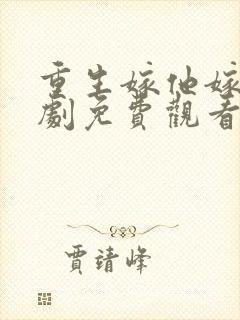 重生嫁他嫁
劇免費觀看
賈靖峰